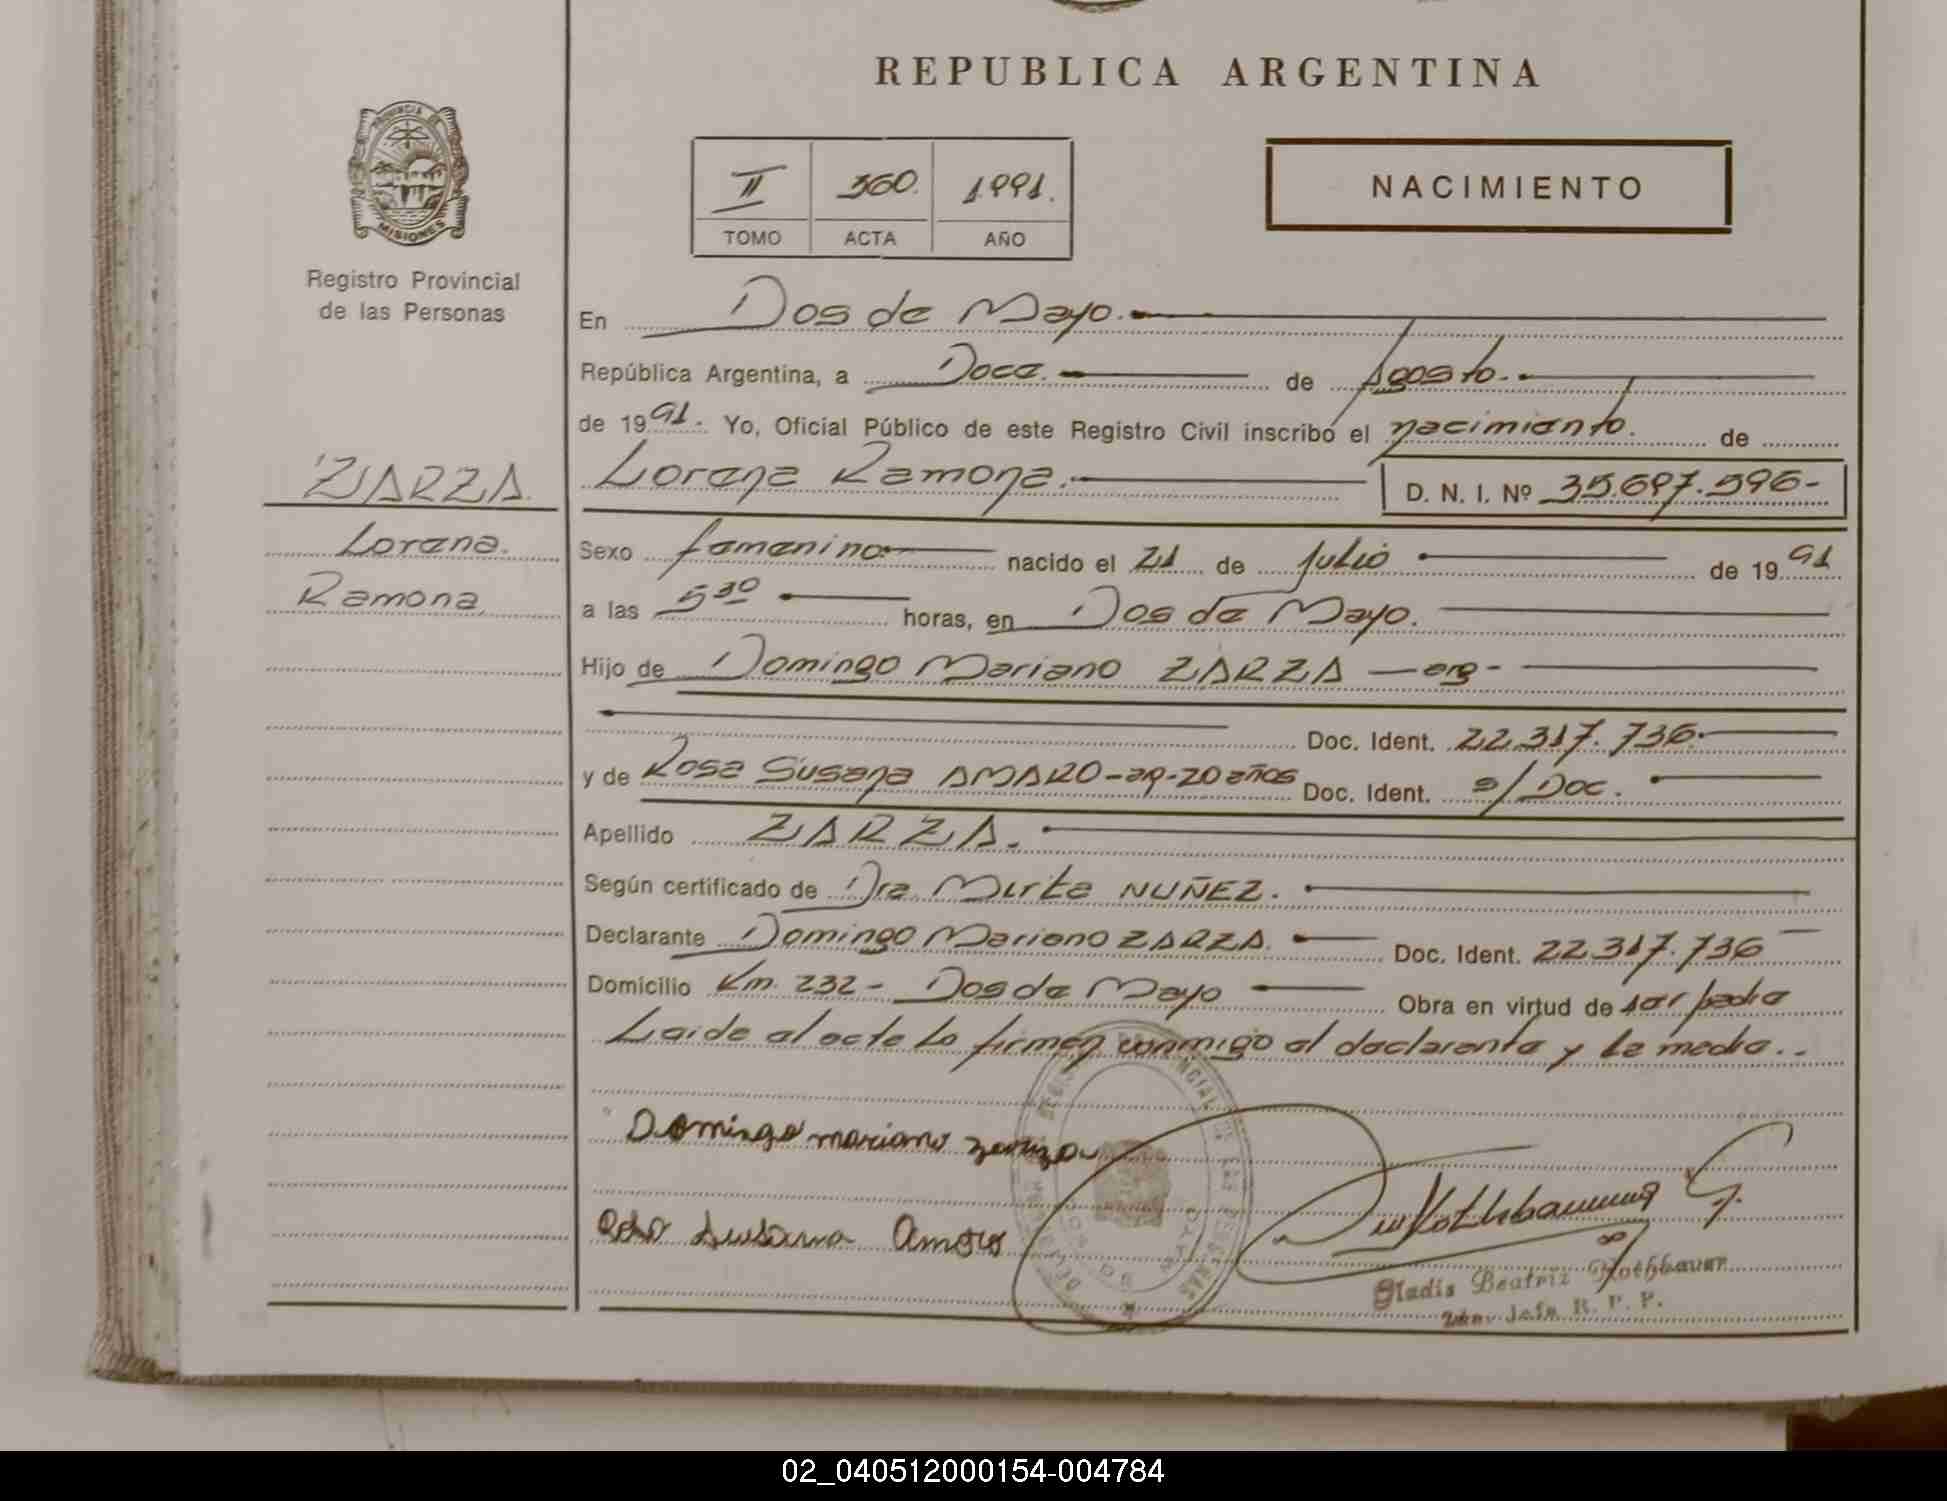 REPUBLICA ARGENTINA
PROVINCIA DE
MISIONES
Registro Provincial
de las Personas
II 360. 1991.
TOMO ACTA AÑO
NACIMIENTO
En Dos de Mayo.
República Argentina, a Doce. de Agosto.
de 1991. Yo, Oficial Público de este Registro Civil inscribo el nacimiento. de
Lorena Ramona. D. N. I. Nº 35.697.596-
ZARZA
Lorena.
Ramona
Sexo femenino nacido el 21 de Julio de 1991
a las 5 30 horas, en Dos de Mayo.
Hijo de Domingo Mariano ZARZA - arg -
Doc. Ident. 22.317.736.
y de Rosa Susana AMARO - ar - 20 años Doc. Ident. s/Doc.
Apellido ZARZA.
Según certificado de Dra. Mirta NUÑEZ.
Declarante Domingo Mariano ZARZA. Doc. Ident. 22.317.736
Domicilio Km. 232 - Dos de Mayo Obra en virtud de ser padre
Leide el acte Lo firman conmigo el declarante y la madre..
Domingo mariano zarza
Rosa Susana Amaro
Gladis Beatriz Rothbauer
R. P. P.
02_040512000154-004784